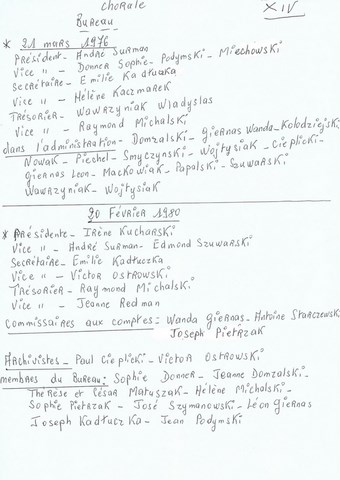 Chorale
XIV
Bureau
* 21 mars 1976
Président - André Surman
Vice " - Donner Sophie - Podymski - Miechowski
Secrétaire - Emilie Kadłucka
Vice " - Hélène Kaczmarek
Trésorier - Wawrzyniak Wladyslas
Vice " - Raymond Michalski
dans l'administration - Domzalski - Giernas Wanda - Kolodziejski
Nowak - Piechel - Smyczynski - Wojtysiak - Cieplicki -
Giernas Leon - Mackowiak - Papalski - Szuwarski -
Wawrzyniak - Wojtysiak
20 Février 1980
* Présidente - Irène Kucharski
Vice " - André Surman - Edmond Szuwarski
Secrétaire - Emilie Kadłuczka
Vice " - Victor Ostrowski
Trésorier - Raymond Michalski
Vice " - Jeanne Redman
Commissaires aux comptes : Wanda Giernas - Antoine Starczewski
Joseph Pietrzak
Archivistes - Paul Cieplicki - Victor Ostrowski
membres du Bureau : Sophie Donner - Jeanne Domzalski -
Thérèse et César Matuszak - Hélène Michalski -
Sophie Pietrzak - José Szymanowski - Léon Giernas
Joseph Kadłuczka - Jean Podymski